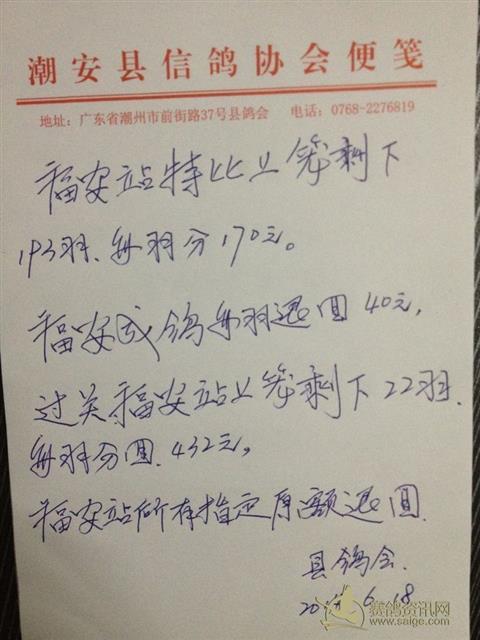 潮安县信鸽协会便笺
地址：广东省潮州市前街路37号县鸽会 电话：0768-2276819
福安站特比上笼剩下
193羽、每羽分170元。
福安成鸽每羽退回40元，
过关福安站上笼剩下22羽、
每羽分回432元，
福安站所有指定原额退回
县鸽会
6.18
赛鸽资讯网
www.saige.com